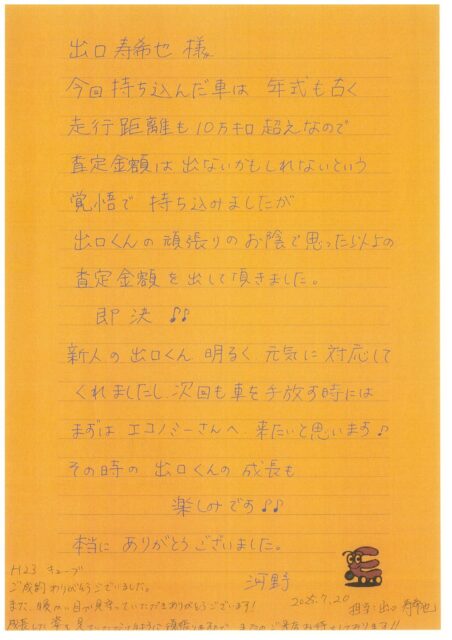 出口 寿希也 様
今回 持ち込んだ車は 年式も古く
走行距離も 10万キロ超えなので
査定金額は 出ないかもしれないという
覚悟で 持ち込みましたが
出口くんの 頑張りのお陰で思った以上の
査定金額を出して頂きました。
即決 ♪♪
新人の 出口くん 明るく 元気に 対応して
くれましたし 次回も車を手放す時には
まずは エコノミーさんへ 来たいと思います♪
その時の 出口くんの 成長も
楽しみです♪♪
本当に ありがとうございました。
河野
H23 キューブ
ご成約ありがとうございました。
また、暖かい目で見守っていただきありがとうございます!
2025.7.20
担当:出口 寿希也
成長した姿を見ていただけるように頑張りますので またのご来店お待ちしております!!